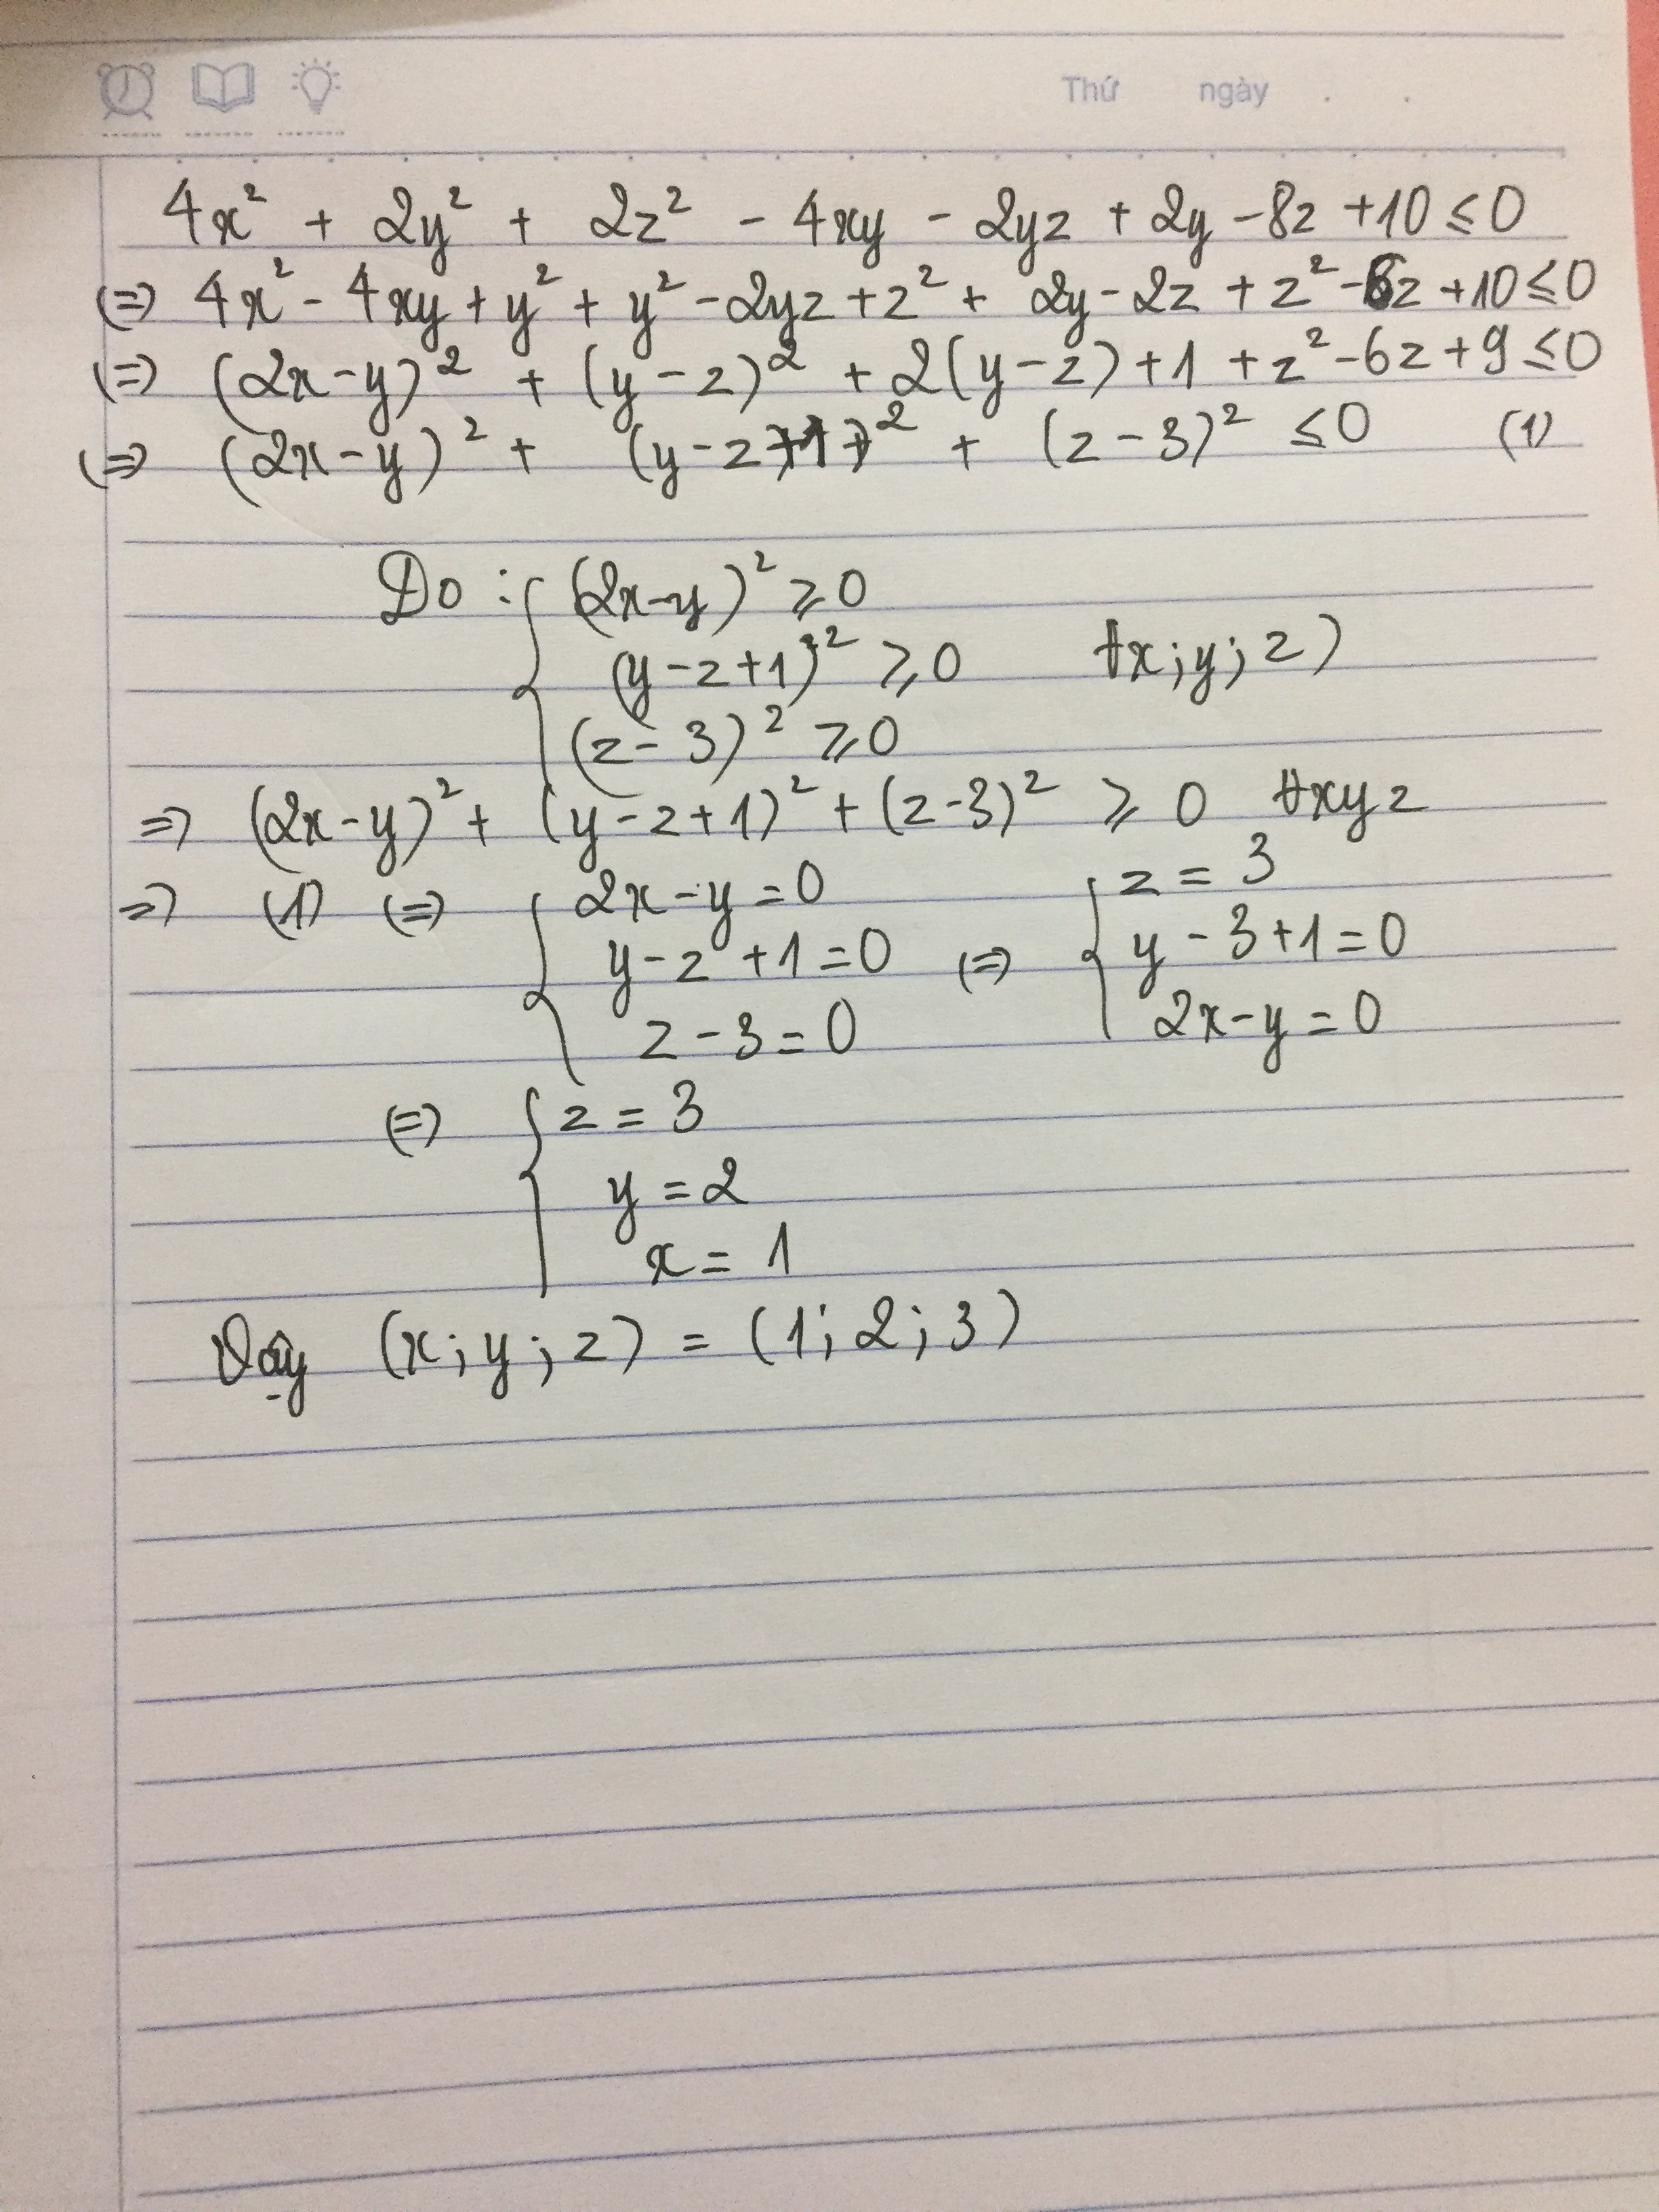 Thứ ngày . .
4x² + 2y² + 2z² - 4xy - 2yz + 2y - 8z + 10 ≤ 0
(=) 4x² - 4xy + y² + y² - 2yz + z² + 2y - 2z + z² - 6z + 10 ≤ 0
(=) (2x - y)² + (y - z)² + 2(y - z) + 1 + z² - 6z + 9 ≤ 0
(=) (2x - y)² + (y - z + 1)² + (z - 3)² ≤ 0 (1)
Do : { (2x - y)² ≥ 0
(y - z + 1)² ≥ 0 ∀x; y; z)
(z - 3)² ≥ 0
=> (2x - y)² + (y - z + 1)² + (z - 3)² ≥ 0 ∀xyz
=> (1) (=) { 2x - y = 0
y - z + 1 = 0
z - 3 = 0
(=) { z = 3
y - 3 + 1 = 0
2x - y = 0
(=) { z = 3
y = 2
x = 1
Vậy (x; y; z) = (1; 2; 3)